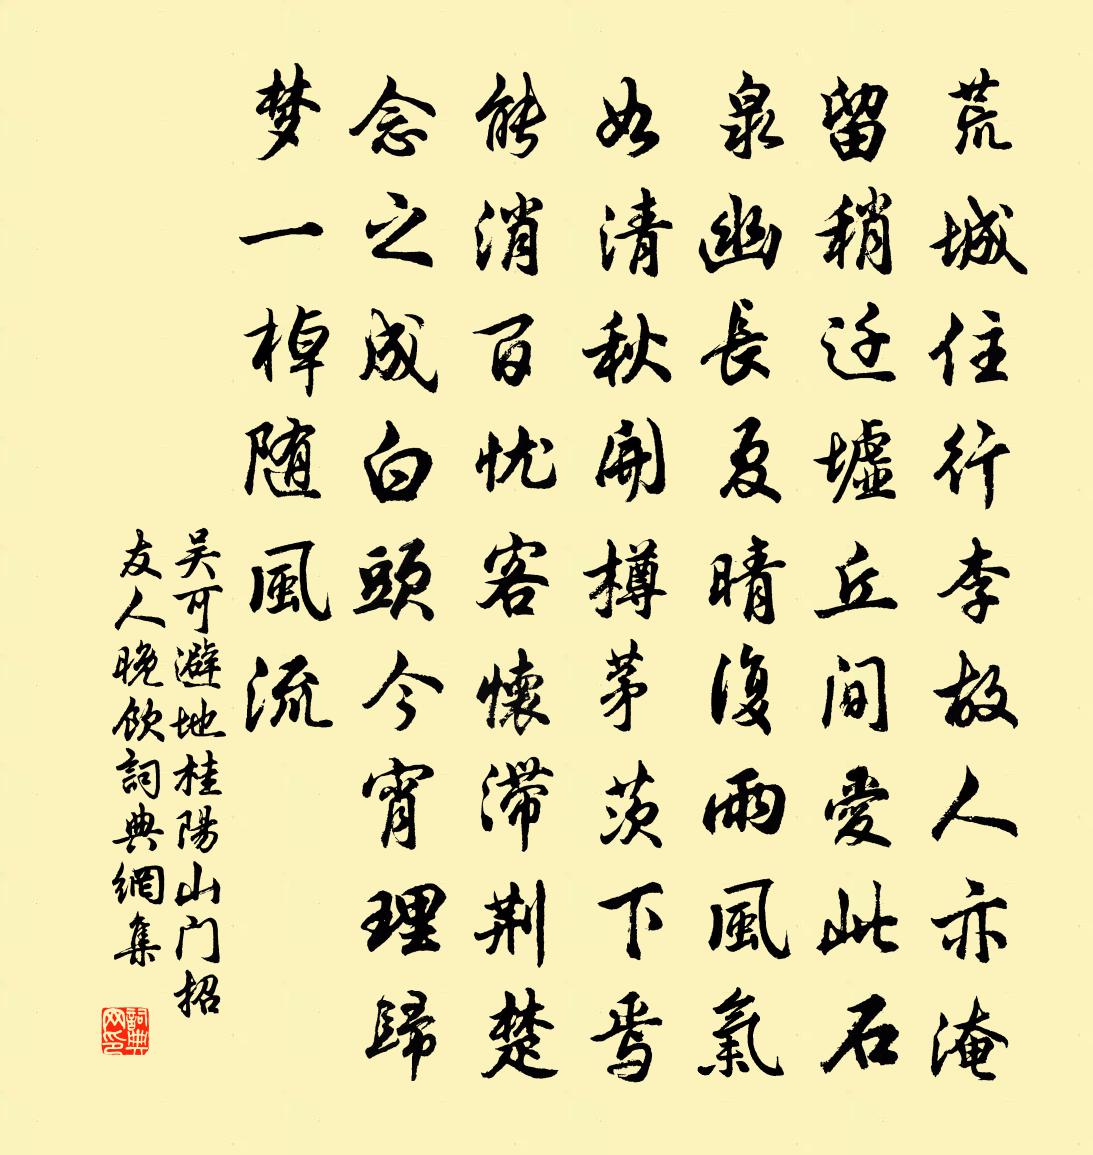 荒城住行李故人亦淹
留稍迁墟丘間愛此石
泉幽長夏晴復雨風氣
如清秋開樽茅茨下焉
能消百忧客懷滞荆楚
念之成白頭今宵理歸
梦一棹随風流
吴可避地桂陽山门招
友人晚飲詞典網集
詞典网印